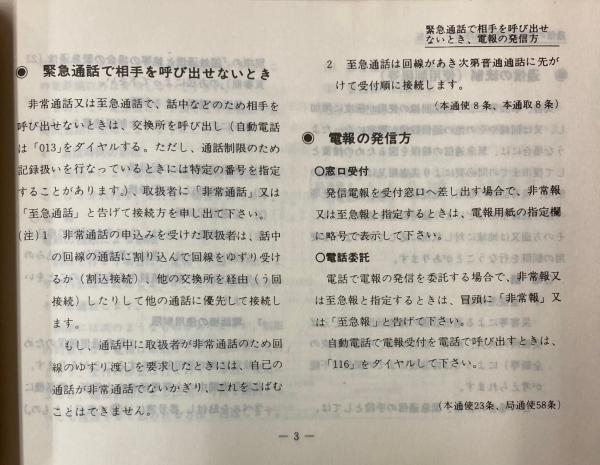 緊急通話で相手を呼び出せ
ないとき、電報の発信方
◉ 緊急通話で相手を呼び出せないとき
非常通話又は至急通話で、話中などのため相手を
呼び出せないときは、交換所を呼び出し（自動電話
は「013」をダイヤルする。ただし、通話制限のため
記録扱いを行なっているときには特定の番号を指定
することがあります。）、取扱者に「非常通話」又は
「至急通話」と告げて接続方を申し出て下さい。
（注）1 非常通話の申込みを受けた取扱者は、話中
の回線の通話に割り込んで回線をゆずり受け
るか（割込接続）、他の交換所を経由（う回
接続）したりして他の通話に優先して接続し
ます。
もし、通話中に取扱者が非常通話のため回
線のゆずり渡しを要求したときには、自己の
通話が非常通話でないかぎり、これをこばむ
ことはできません。
2 至急通話は回線があき次第普通通話に先が
けて受付順に接続します。
（本通使8条、本通取8条）
◉ 電報の発信方
○窓口受付
発信電報を受付窓口へ差し出す場合で、非常報
又は至急報と指定するときは、電報用紙の指定欄
に略号で表示して下さい。
○電話委託
電話で電報の発信を委託する場合で、非常報又
は至急報と指定するときは、冒頭に「非常報」又
は「至急報」と告げて下さい。
自動電話で電報受付を電話で呼び出すときは、
「116」をダイヤルして下さい。
（本通使23条、局通使58条）
― 3 ―